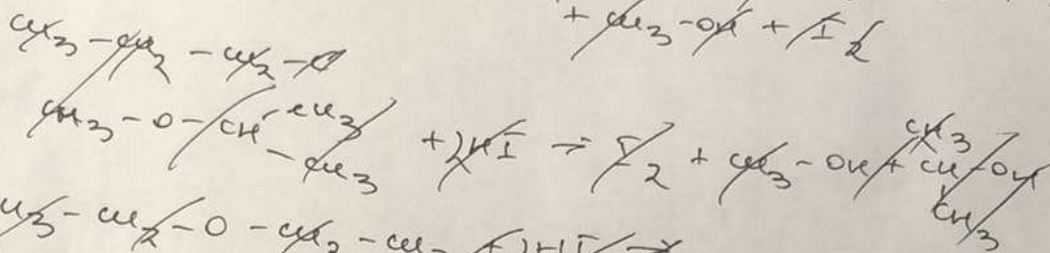 + CH3-OH + I2
CH3-CH2-CH2-O
CH3
CH3-O-CH-CH3 +2HI → I2 + CH3-OH + CH-OH
-CH3
CH3
H3-CH2-O-CH2-CH +2HI →